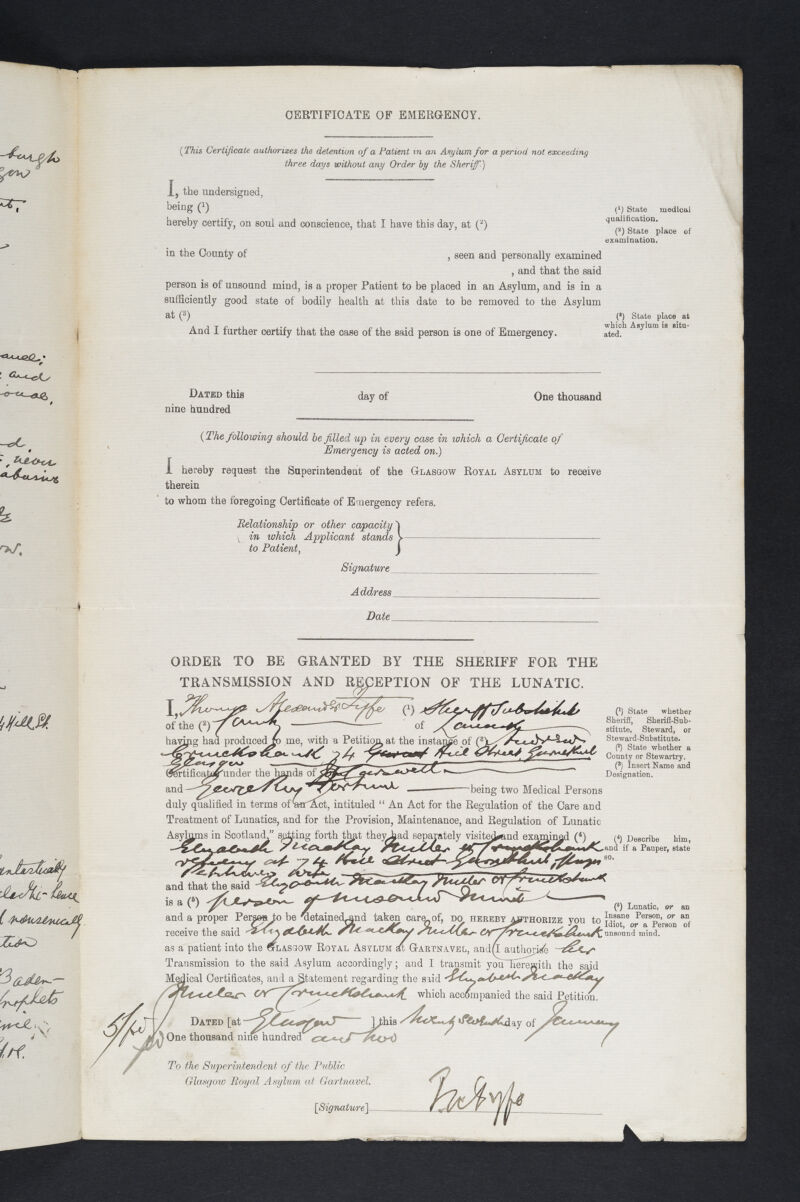 burgh
gow
and
never
abusive
Hill St.
antastically
hence
nonsensically
Baden-
prophets
CERTIFICATE OF EMERGENCY.
(This Certificate authorizes the detention of a Patient in an Asylum for a period not exceeding
three days without any Order by the Sheriff.)
I, the undersigned,
being (¹)
hereby certify, on soul and conscience, that I have this day, at (²)
in the County of , seen and personally examined
, and that the said
person is of unsound mind, is a proper Patient to be placed in an Asylum, and is in a
sufficiently good state of bodily health at this date to be removed to the Asylum
at (³)
And I further certify that the case of the said person is one of Emergency.
(¹) State medical
qualification.
(²) State place of
examination.
(³) State place at
which Asylum is situ-
ated.
DATED this day of One thousand
nine hundred
(The following should be filled up in every case in which a Certificate of
Emergency is acted on.)
I hereby request the Superintendent of the GLASGOW ROYAL ASYLUM to receive
therein
to whom the foregoing Certificate of Emergency refers.
Relationship or other capacity
in which Applicant stands
to Patient,
Signature
Address
Date
ORDER TO BE GRANTED BY THE SHERIFF FOR THE
TRANSMISSION AND RECEPTION OF THE LUNATIC.
I, Thomas Alexander Fyfe (¹) Sheriff Substitute
of the (²) County of Lanark
having had produced to me, with a Petition at the instance of (³) Andrew
Cruickshank 74 Hill Street Garnethill
Glasgow
Certificates under the hands of Carswell
and George Roy Fortune being two Medical Persons
duly qualified in terms of an Act, intituled “ An Act for the Regulation of the Care and
Treatment of Lunatics, and for the Provision, Maintenance, and Regulation of Lunatic
Asylums in Scotland,” setting forth that they had separately visited and examined (⁴)
Elizabeth MacKay Miller or Cruickshank
residing at 74 Hill Street Garnethill,
Petitioners wife
and that the said Elizabeth MacKay Miller or Cruickshank
is a (⁵) person of unsound mind
and a proper Person to be detained and taken care of, DO HEREBY AUTHORIZE you to
receive the said Elizabeth MacKay Miller or Cruickshank
as a patient into the GLASGOW ROYAL ASYLUM AT GARTNAVEL, and I authorise her
Transmission to the said Asylum accordingly; and I transmit you herewith the said
Medical Certificates, and a Statement regarding the said Elizabeth MacKay
Miller or Cruickshank which accompanied the said Petition.
(¹) State whether
Sheriff, Sheriff-Sub-
stitute, Steward, or
Steward-Substitute.
(²) State whether a
County or Stewartry.
(³) Insert Name and
Designation.
(⁴) Describe him,
and if a Pauper, state
so.
(⁵) Lunatic, or an
Insane Person, or an
Idiot, or a Person of
unsound mind.
DATED [at Glasgow ] this twenty seventh day of January
One thousand nine hundred and two
5/pd
To the Superintendent of the Public
Glasgow Royal Asylum at Gartnavel.
[Signature] Fyfe